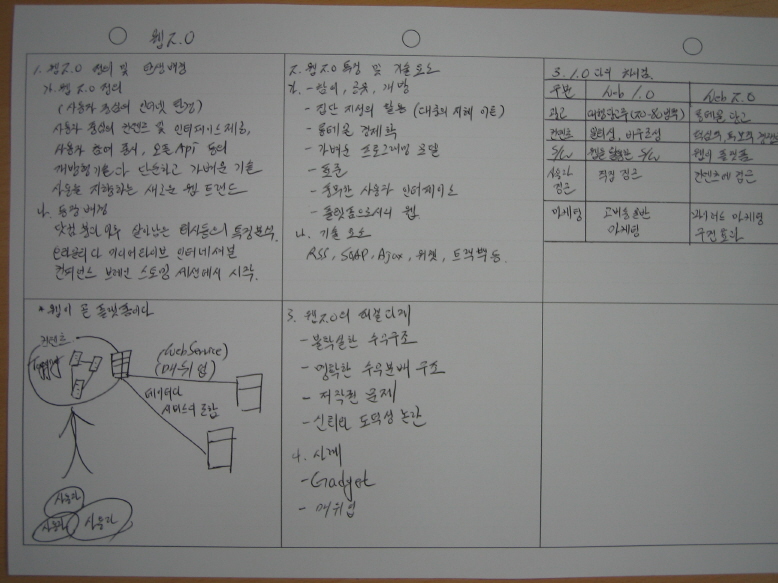 웹 2.0
1. 웹 2.0 정의 및 탄생배경
가. 웹 2.0 정의
(사용자 중심의 인터넷 환경)
사용자 중심의 컨텐츠 및 인터페이스 제공,
사용자 참여 중시, 오픈 Api 등의
개방형 기술과 단순하고 가벼운 기술
사용을 지향하는 새로운 웹 트렌드
나. 등장 배경
닷컴 붕괴 이후 살아남은 회사들의 특징분석.
오라일리와 미디어라이브 인터내셔널
컨퍼런스 브레인 스토밍 세션에서 시작.
2. 웹 2.0 특성 및 기술요소
가. - 참여, 공유, 개방
- 집단 지성의 활용 (대중의 지혜 이용)
- 롱테일 경제학
- 가벼운 프로그래밍 모델
- 표준
- 풍부한 사용자 인터페이스
- 플랫폼으로서의 웹
나. 기술 요소
RSS, SOAP, Ajax, 위젯, 트랙백 등.
3. 1.0과의 차이점
구분 Web 1.0 Web 2.0
광고 롱테일 광고
컨텐츠
S/W 웹을 활용한 S/W 웹이 플랫폼
사용자 접근 직접 접근 컨텐츠에 접근
마케팅 고비용 일반 마케팅 마케팅 구전효과
* 웹이 곧 플랫폼이다
컨텐츠
Tagging
(WebService)
(매쉬업)
데이터와
서비스의 조합
사용자
사용자
사용자
3. 웹 2.0의 해결과제
- 불확실한 수익구조
- 명확한 수익분배 구조
- 저작권 문제
- 신뢰와 도덕성 논란
4. 사례
- Gadget
- 매쉬업